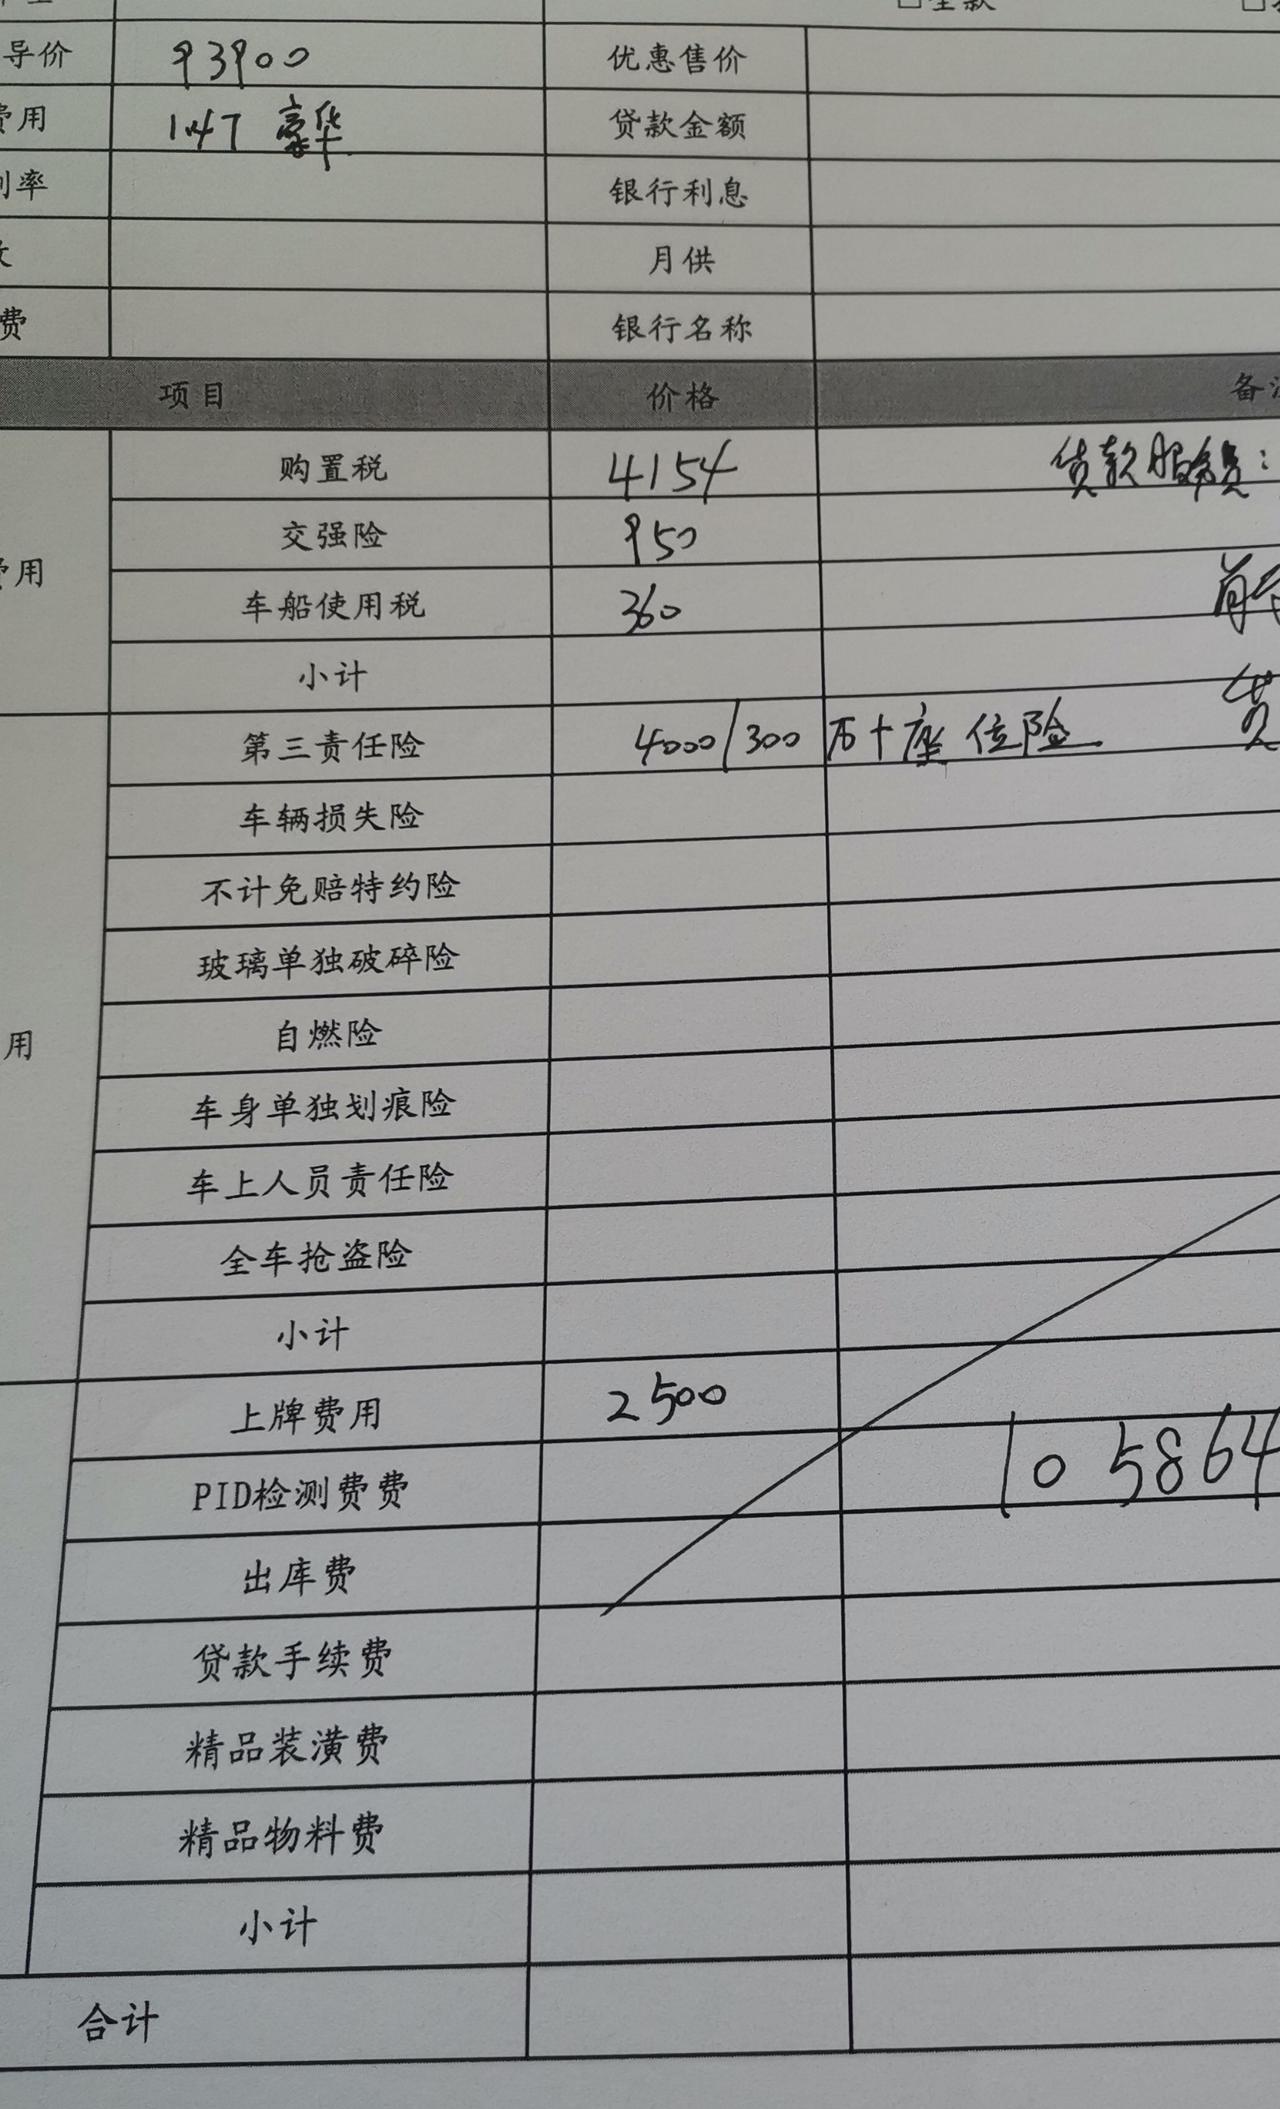 导价 93900 优惠售价
费用 1.4T 豪华 贷款金额
利率 银行利息
月供
费 银行名称
项目 价格
购置税 4154 贷款服务费:
交强险 950
费用
车船使用税 360
小计
第三责任险 4000/300万+座位险
车辆损失险
不计免赔特约险
玻璃单独破碎险
用 自燃险
车身单独划痕险
车上人员责任险
全车抢盗险
小计
上牌费用 2500
PID检测费费 105864
出库费
贷款手续费
精品装潢费
精品物料费
小计
合计